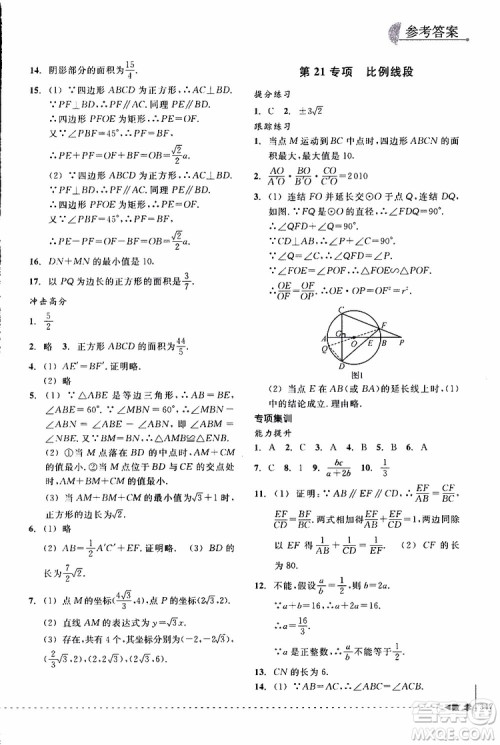 参考答案
14. 阴影部分的面积为15/4.
15. (1) ∵四边形 ABCD 为正方形,∴AC⊥BD.
∵PF⊥BD,∴PF∥AC. 同理 PE∥BD.
∴四边形 PFOE 为矩形,∴PE=OF.
又∵∠PBF=45°,∴PF=BF.
∴PE+PF=OF+FB=OB=5√2.
(2) ∵四边形 ABCD 为正方形,∴AC⊥BD.
∵PF⊥BD,∴PF∥AC. 同理 PE∥BD.
∴四边形 PFOE 为矩形,∴PE=OF.
又∵∠PBF=45°,∴PF=BF.
∴PE-PF=OF-BF=OB=5√2.
16. DN+MN 的最小值是 10.
17. 以 PQ 为边长的正方形的面积是3/7.
冲击高分
1. 5/2
2. 略 3. 正方形 ABCD 的面积44/5.
4. (1) AE=BF. 证明略.
(2) 略
5. (1) ∵△ABE 是等边三角形,∴BA=BE,
∠ABE=60°. ∵∠MBN=60°,∴∠MBN
-∠ABN=∠ABE-∠ABN,即∠BMA=
∠NBE. 又∵MB=NB,∴△AMB≌△ENB.
(2) ①当 M 点落在 BD 的中点时,AM+CM
的值最小. ②当 M 点位于 BD 与 CE 的交点处
时,AM+BM+CM 的值最小.
(3) 当 AM+BM+CM 的最小值为√3+1 时,
正方形的边长为√2.
6. (1) 略
(2) AB=1/2(AF+AE),证明略. (3) BD
的长为5/2.
7. (1) 点 M 的坐标(4√3,3),点 P 的坐标(2√3,3).
(2) 直线 AM 的表达式为
(3) 存在,符合条件的点有(-2√3,3),
(2√3,3),(6√3,3)
第 21 专项 比例线段
提分练习
1. C 2. ±3√2
跟踪练习
1. 当点 M 运动到 BC 中点时,四边形 ABCN 的面
积最大,最大面积是 10.
2. AO/A′O·BO/B′O·CO/C′O=2010
3. (1) 连结 FO 并延长交⊙O 于 Q,连结 DQ,
如图. ∵FQ 是⊙O 直径,∴∠FDQ=90°.
∴∠QFD+∠Q=90°.
∵CD⊥AB,∴∠P+∠C=90°.
∵∠Q=∠C,∴∠QFD=∠P.
∵∠FOE=∠POF,∴△FOE∽△POF.
∴OE/OF=OF/OP. ∴OE·OP=OF²=r².
图1
(2) 当点 E 在 AB 的延长线上时,(1)中的
结论成立. 证明略.
专项集训
能力提升
1. A 2. C 3. B 4. C 5. A 6. B
7. C 8. 1 9. bc/(a+2b) 10. 1/3
11. (1) 证明:∵AB∥EF,∴EF/AB=CF/CB.
∵EF∥CD,∴EF/CD=BF/BC,∴EF/AB+EF/CD=
CF/CB+BF/BC=1.
以 EF 得1/AB+1/CD=1/EF. (2) CF 的长
为 80.
12. 不能,假设a/b=1/2,则b=2a.
∵a+b=16,∴a+2a=16,
∴a=16/3.
∵a 是正整数,∴a/b不可能等于1/2.
13. CN 的长为 6.
14. (1) ∵AD∥BC,∴∠DAF=∠AEB.